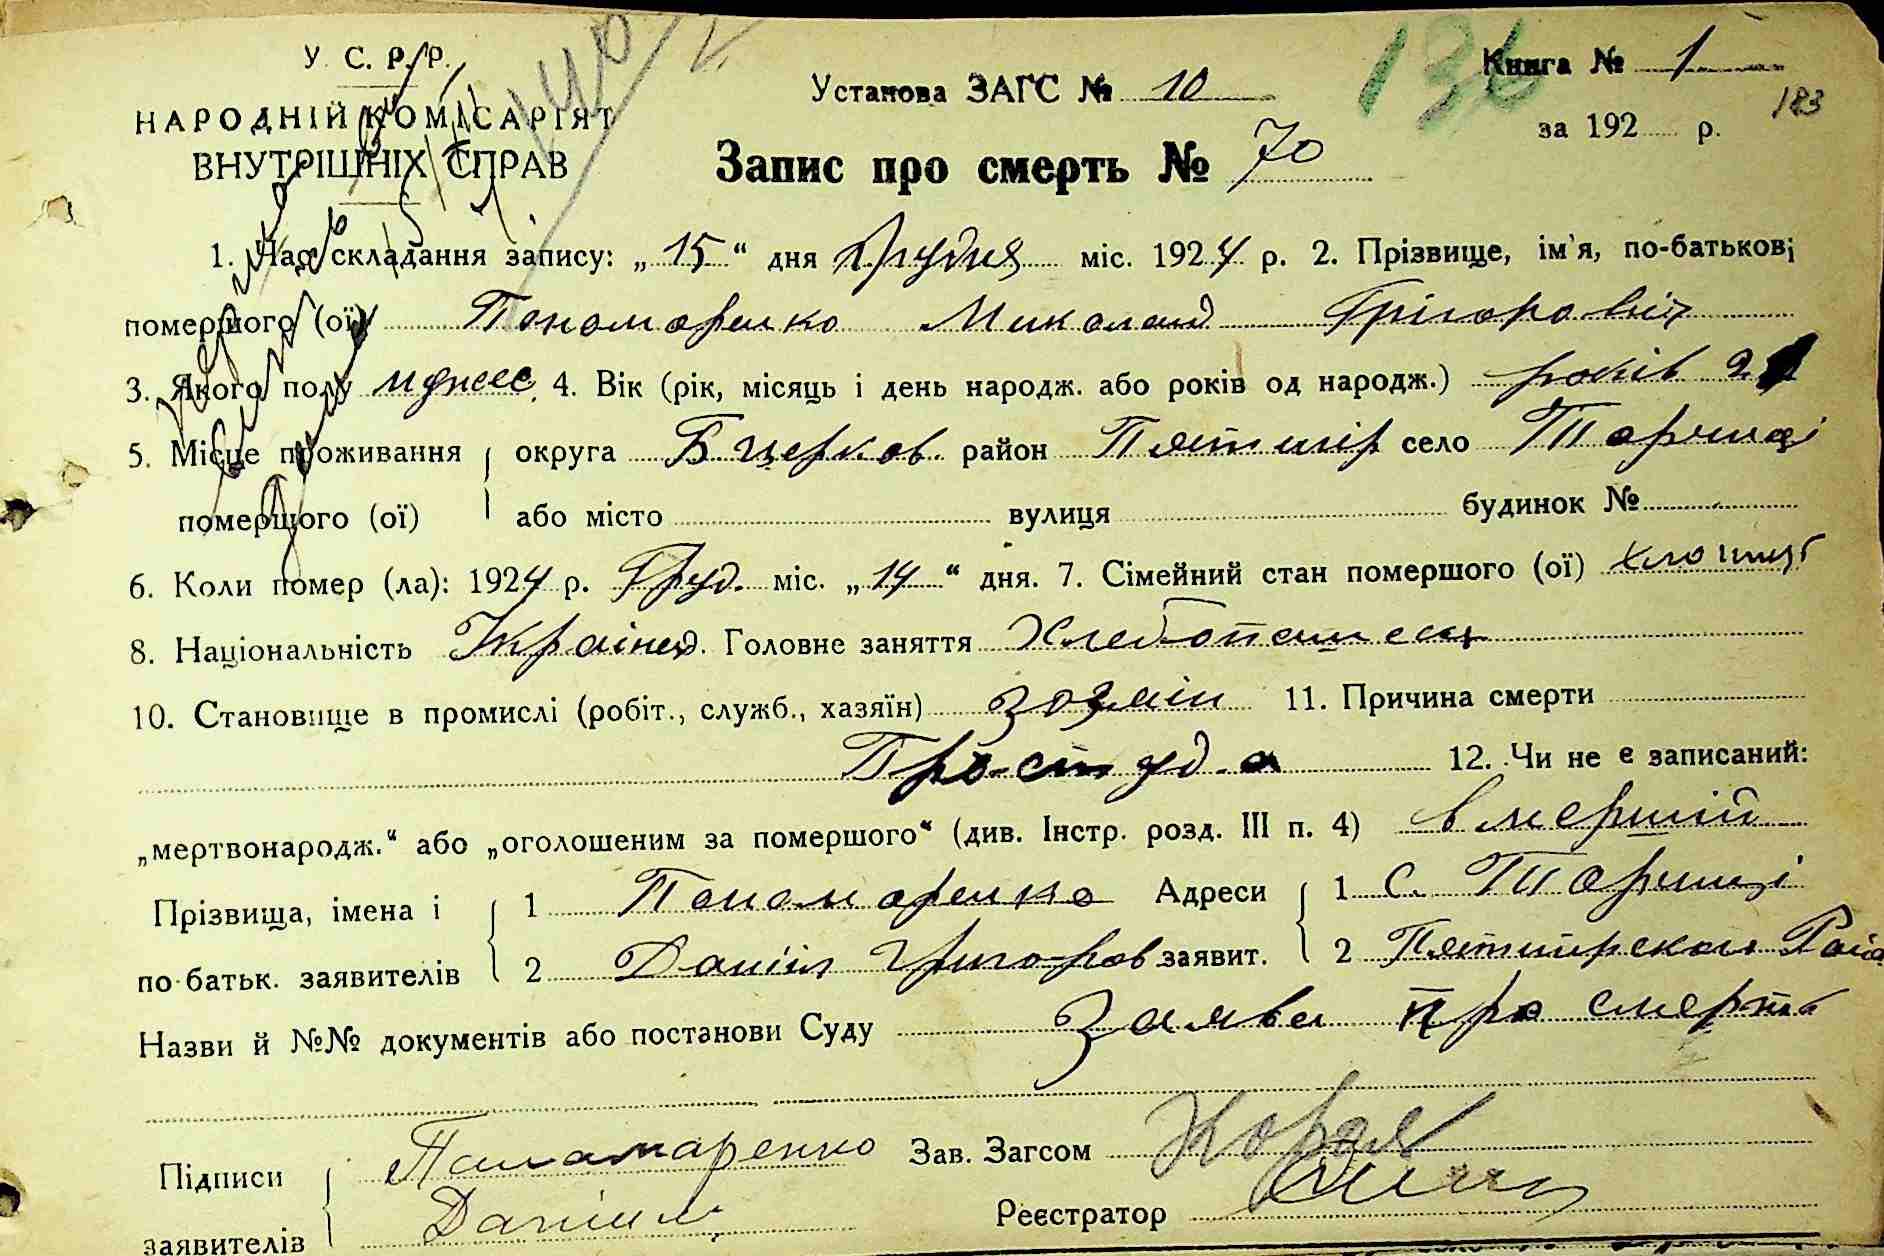 У. С. Р. Р.
НАРОДНІЙ КОМІСАРІЯТ
ВНУТРІШНІХ СПРАВ
Установа ЗАГС № 10
136
Книга № 1
за 192 р.
183
Запис про смерть № 70
1. Час складання запису: „15“ дня Грудня міс. 1924 р. 2. Прізвище, ім'я, по-батькові
померщого (ої) Пономаренко Миколай Грігоровіч
3. Якого полу 4. Вік (рік, місяць і день народж. або років од народж.) років
5. Місце проживання округа Бцерков. район Пятигір село Торчиці
померщого (ої) або місто вулиця будинок №
6. Коли помер (ла): 1924 р. Груд. міс. „14“ дня. 7. Сімейний стан помершого (ої)
8. Національність Українец. Головне заняття Хлебопашец
10. Становище в промислі (робіт., служб., хазяїн) 11. Причина смерти
Простуда 12. Чи не є записаний:
„мертвонародж.“ або „оголошеним за помершого“ (див. Інстр. розд. III п. 4) вмерший
Прізвища, імена і 1 Пономаренко Адреси 1 С. Торчиці
по-батьк. заявителів 2 Даніїл Григоров заявит. 2 Пятигирского Раіо
Назви й №№ документів або постанови Суду Заява про смерть
Підписи Панамаренко Зав. Загсом
заявителів Даниил Реєстратор